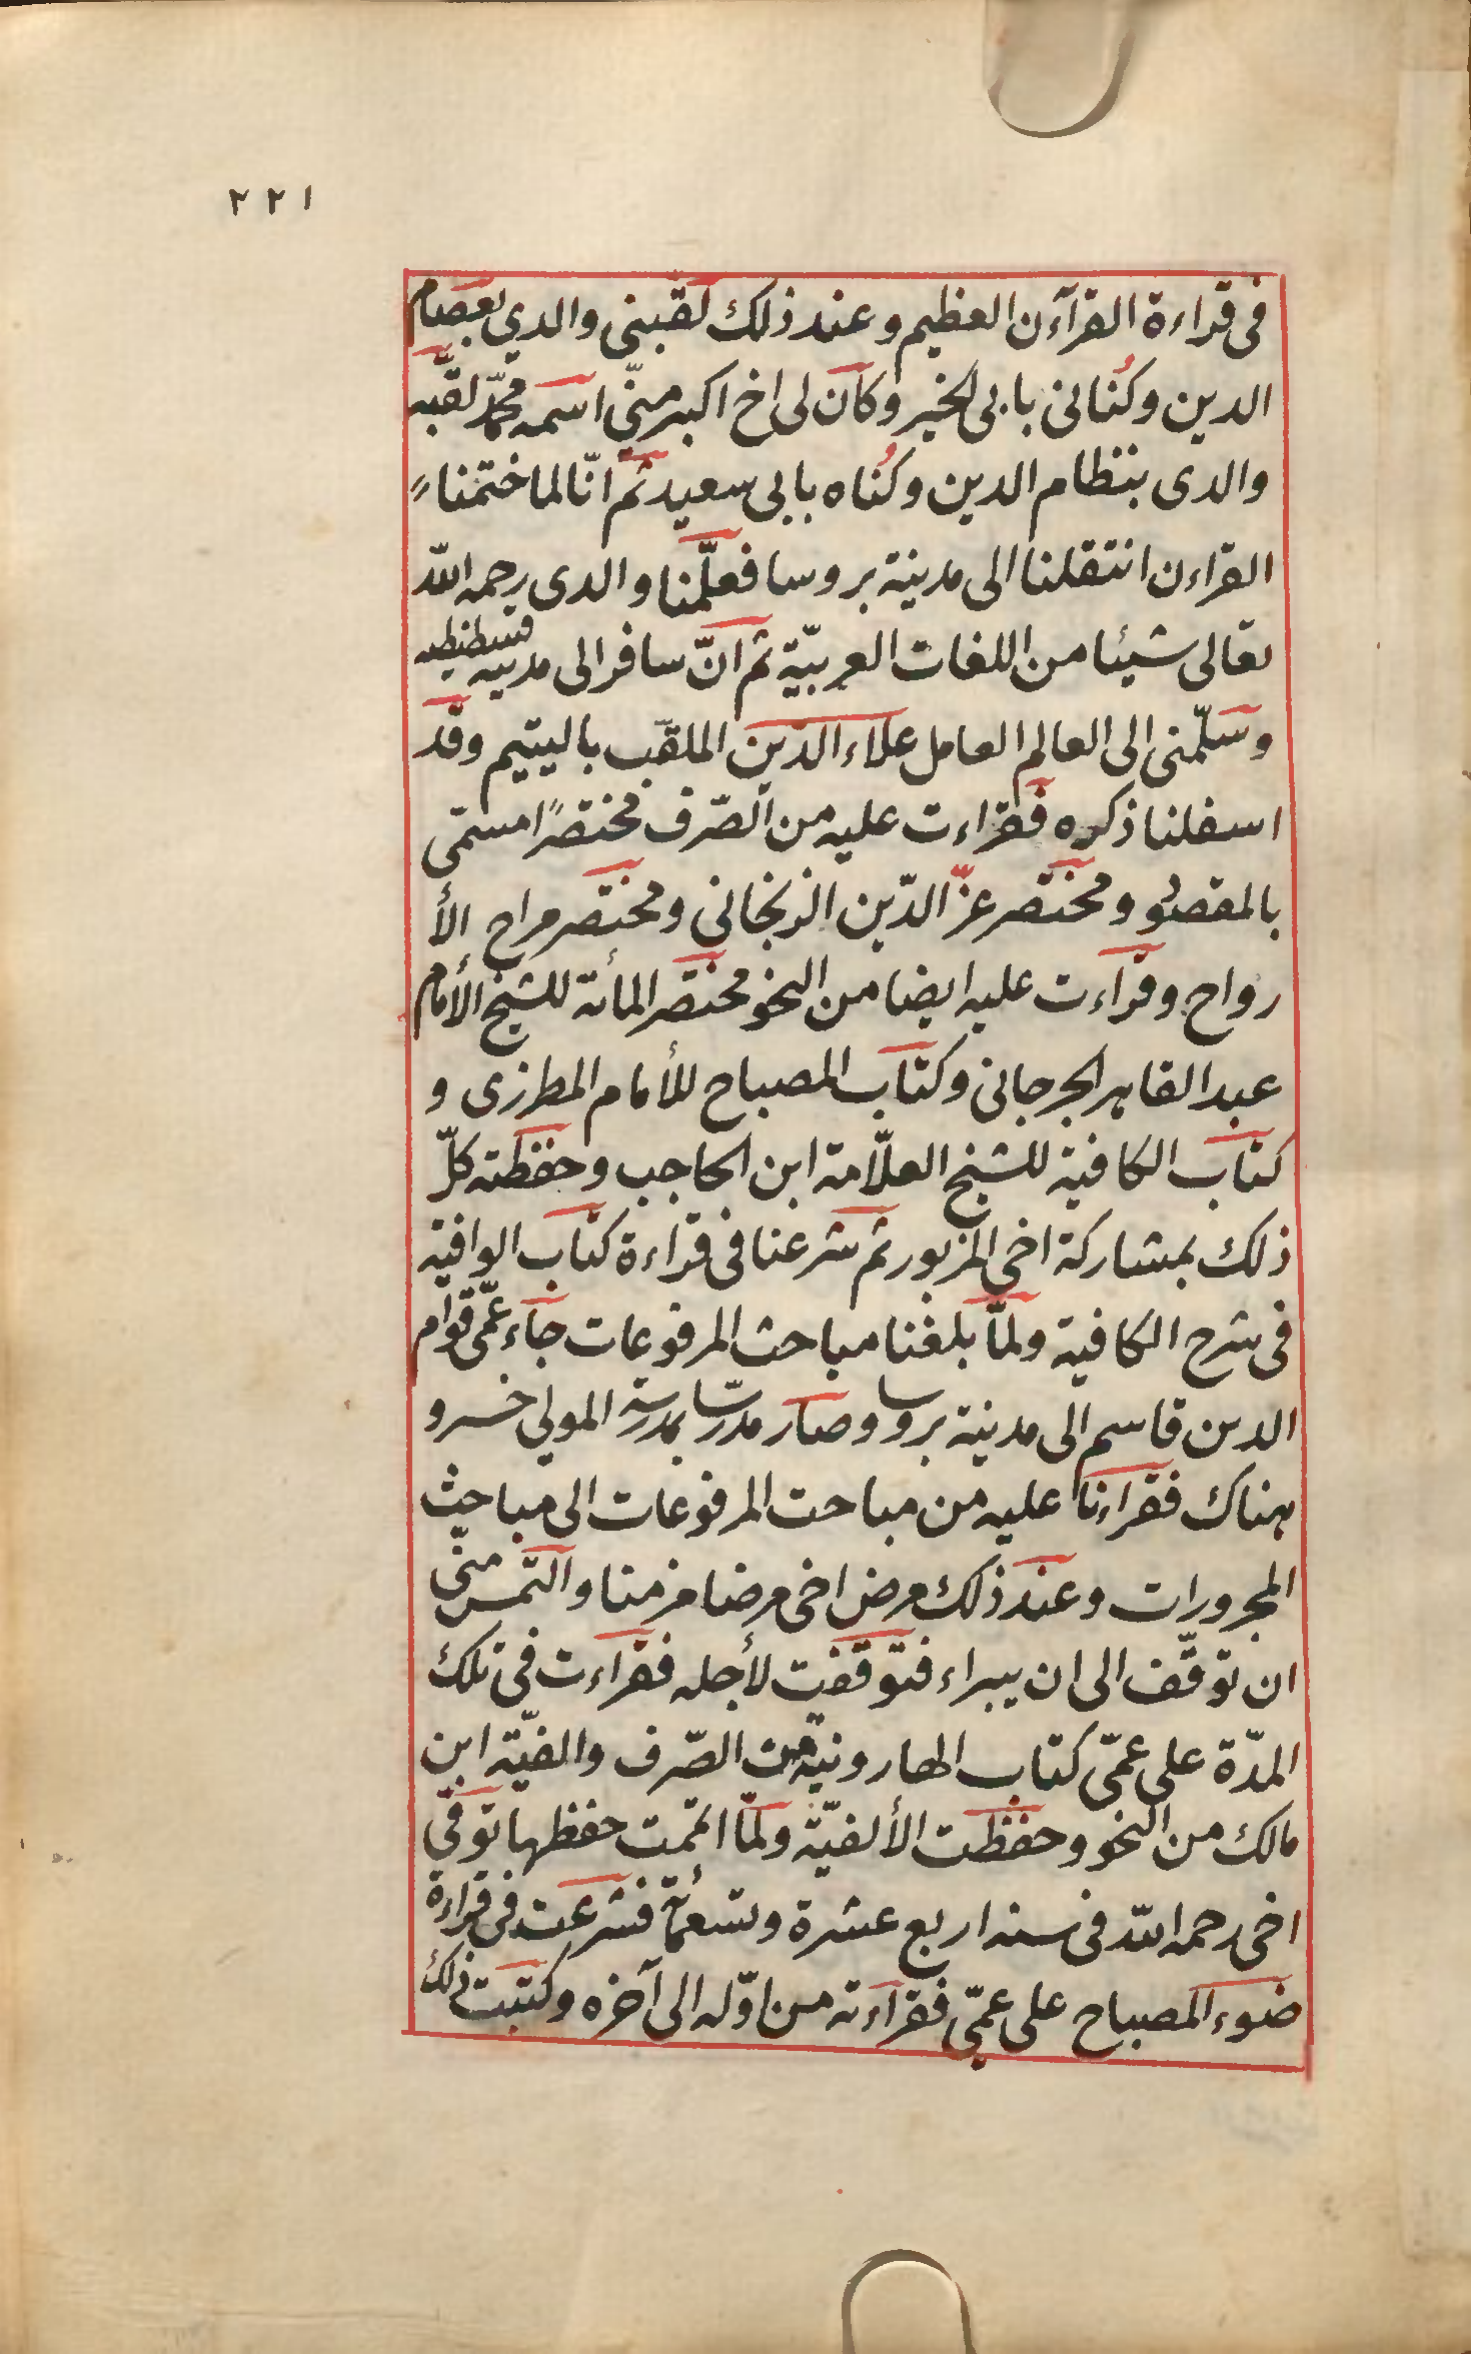 ٢٢١
فى قراءة القرآءن العظيم وعند ذلك لقّبنى والدي بعصام
الدين وكُنانى بابى الخير وكان لى اخ اكبر منّى اسمه محمّد لقّبه
والدى بنظام الدين وكُناه بابى سعيد ثم انّا لما ختمنا
القراءن انتقلنا الى مدينة بروسا فعلّمنا والدى رحمه الله
تعالى شيئا من اللغات العربيّة ثم انّ سافر الى مدينه قسطنطنيه
وسلّمنى الى العالم العامل علاء الدّين الملقّب باليتيم وقد
اسفلنا ذكره فقراءت عليه من الصّرف مختصرًا مسمّى
بالمقصود ومختصر عزّ الدّين الزنجانى ومختصر مراح الأ
رواح وقراءت عليه ايضا من النحو مختصر المأنة للشيخ الأمام
عبد القاهر الجرجانى وكتاب المصباح للأمام المطرزى و
كتاب الكافية للشيخ العلّامة ابن الحاجب وحفظته كلّ
ذلك بمشاركة اخى المزبور ثم شرعنا فى قراءة كتاب الوافية
فى شرح الكافية ولمّا بلغنا مباحث المرفوعات جاء عمّى قوام
الدين قاسم الى مدينة بروسا وصار مدرّسا بمدرسة المولى خسرو
هناك فقراءنا عليه من مباحث المرفوعات الى مباحث
المجرورات وعند ذلك مرض اخى مرضا مزمنا والتمس منّى
ان توقّف الى ان يبراء فتوقفت لأجله فقراءت فى تلك
المدّة على عمّى كتاب الهارونية من الصّرف والفيّة ابن
مالك من النحو وحفظت الألفيّة ولمّا اتممت حفظها توفّى
اخى رحمه الله فى سنه اربع عشرة وتسعمأئة فشرعت فى قراءة
ضوء المصباح على عمّى فقراءته من اوّله الى آخره وكتبت ذلك